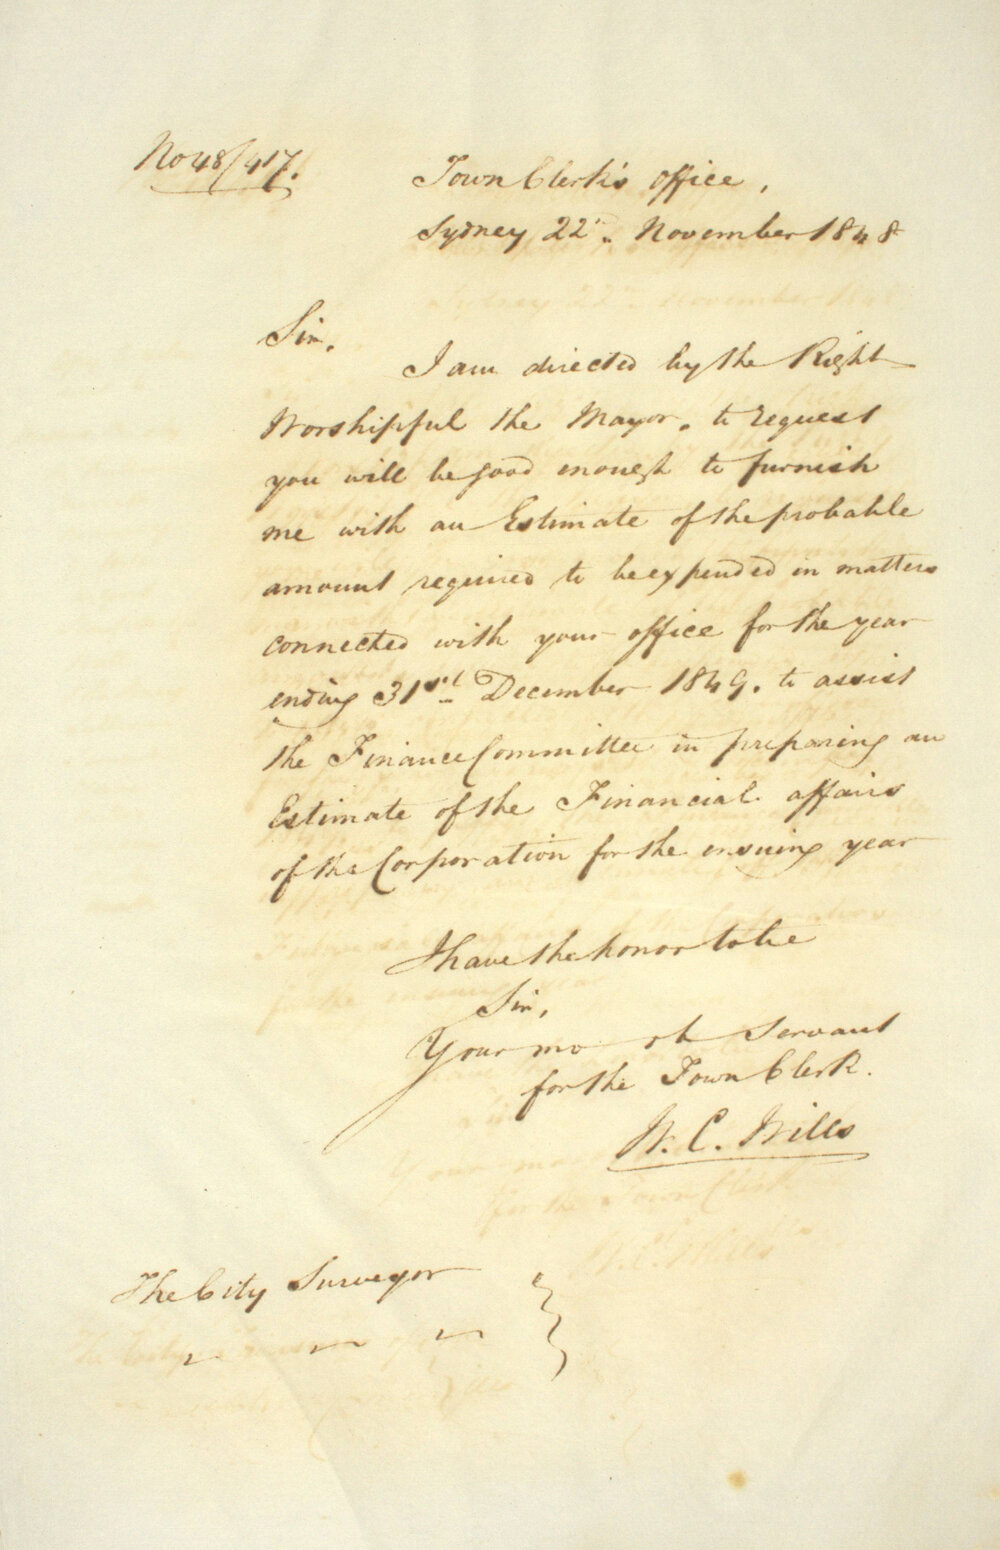 No 48/417.
Town Clerk's Office,
Sydney 22nd. November 1848
Sir,
I am directed by the Right
Worshipful the Mayor. to request
you will be good enough to furnish
me with an Estimate of the probable
amount required to be expended in matters
connected with your office for the year
ending 31st December 1849. to assist
the Finance Committee in preparing an
Estimate of the Financial affairs
of the Corporation for the ensuing year
I have the honor to be
Sir,
Your mo ob Servant
for the Town Clerk.
W. C. Wills
The City Surveyor